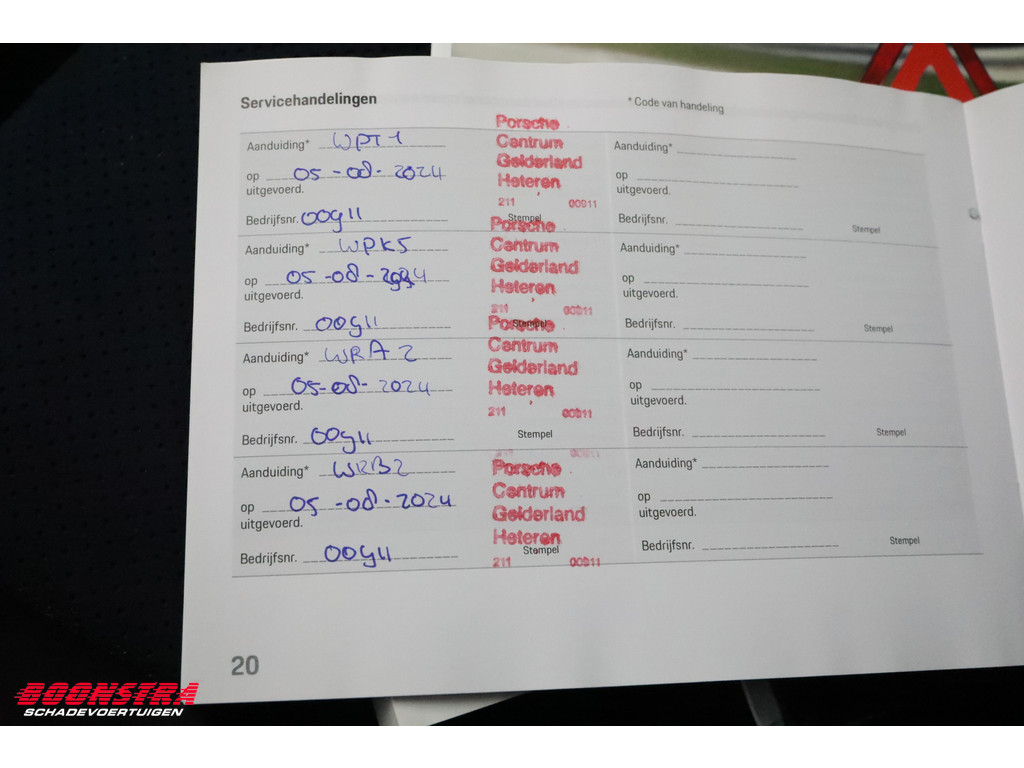 Servicehandelingen
* Code van handeling
Aanduiding* WPT1
op 05-08-2024
uitgevoerd.
Bedrijfsnr. 00911
Porsche
Centrum
Gelderland
Heteren
211 00911
Stempel
Aanduiding* WPK5
op 05-08-2024
uitgevoerd.
Bedrijfsnr. 00911
Porsche
Centrum
Gelderland
Heteren
211 00911
Stempel
Aanduiding* WRA2
op 05-08-2024
uitgevoerd.
Bedrijfsnr. 00911
Porsche
Centrum
Gelderland
Heteren
211 00911
Stempel
Aanduiding* WRB2
op 05-08-2024
uitgevoerd.
Bedrijfsnr. 00911
211 00911
Porsche
Centrum
Gelderland
Heteren
211 00911
Stempel
Aanduiding*
op
uitgevoerd.
Bedrijfsnr.
Stempel
Aanduiding*
op
uitgevoerd.
Bedrijfsnr.
Stempel
Aanduiding*
op
uitgevoerd.
Bedrijfsnr.
Stempel
Aanduiding*
op
uitgevoerd.
Bedrijfsnr.
Stempel
20
BOONSTRA
SCHADEVOERTUIGEN